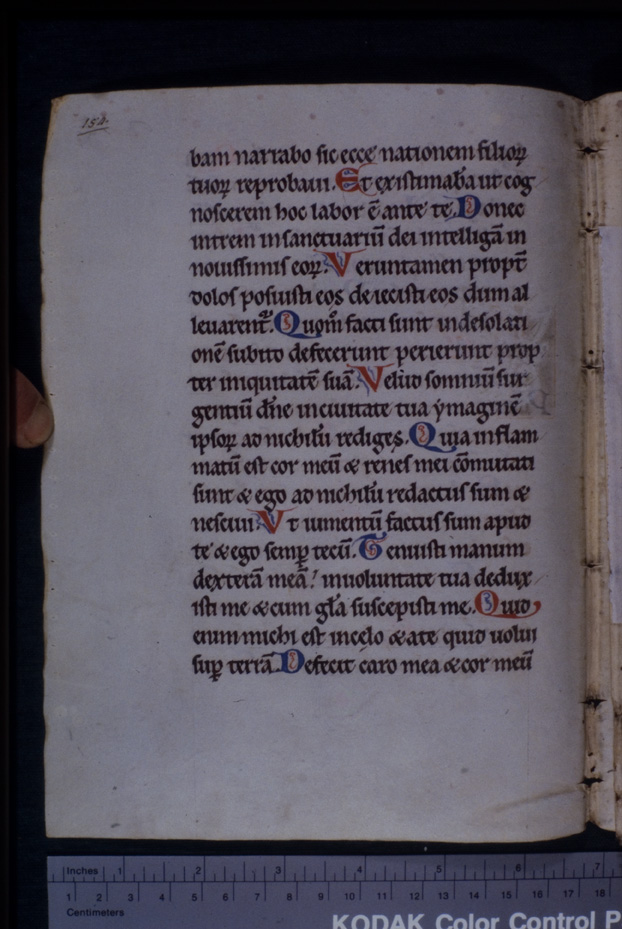 154.
bam narrabo sic ecce nationem filioꝝ
tuoꝝ reprobaui. Et existimaba ut cog
noscerem hoc labor ē ante te. Donec
intrem in sanctuariū dei intelligā in
nouissimis eoꝝ. Veruntamen propt̄
dolos posuisti eos deiecisti eos dum al
leuarent᷑. Quom̊ facti sunt in desolati
onē subito defecerunt perierunt prop
ter iniquitatē suā. Velud somniū sur
gentiū dn̄e in ciuitate tua ẏmaginē
ipsoꝝ ad nichilū rediges. Quia inflam
matū est cor meū & renes mei cōmutati
sunt & ego ad nichilū redactus sum &
nesciui. Vt iumentū factus sum apud
te & ego semꝑ tecū. Tenuisti manum
dexterā meā! in uoluntate tua dedux
isti me & cum gl̄a suscepisti me. Quid
enim michi est in celo & a te quid uolui
suꝑ terrā. Defecit caro mea & cor meū
Inches 1 2 3 4 5 6 7
1 2 3 4 5 6 7 8 9 10 11 12 13 14 15 16 17 18
Centimeters
KODAK Color Control P